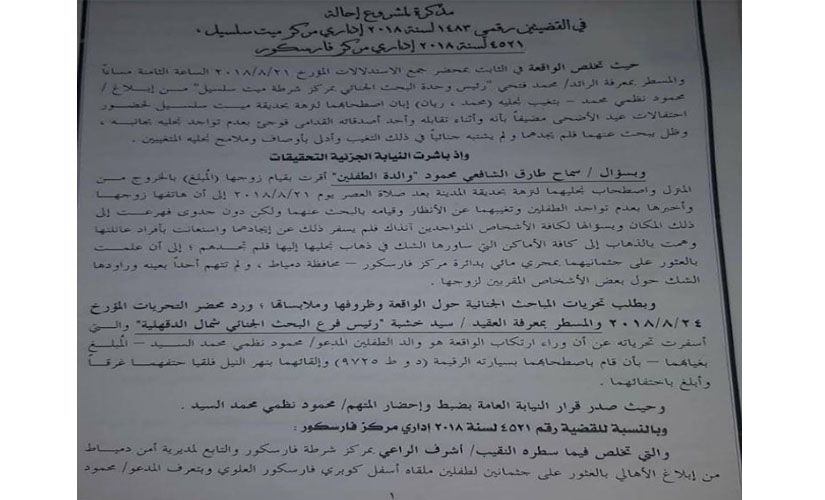 مذكرة لمشروع إحالة
في القضيتين رقمي ١٤٨٣ لسنة ٢٠١٨ إداري مركز ميت سلسيل ،
٤٥٢١ لسنة ٢٠١٨ إداري مركز فارسكور
حيث تخلص الواقعة في الثابت بمحضر جمع الاستدلالات المؤرخ ٢٠١٨/٨/٢١ الساعة الثامنة مساءاً
والمسطر بمعرفة الرائد/ محمد فتحي "رئيس وحدة البحث الجنائي بمركز شرطة ميت سلسيل" من إبلاغ /
محمود نظمي محمد – بتغيب نجليه (محمد ، ريان) إبان اصطحابهما لنزهة بحديقة ميت سلسيل لحضور
احتفالات عيد الأضحى مضيفاً بأنه وأثناء تقابله وأحد أصدقائه القدامى فوجئ بعدم تواجد نجليه بجانبه ،
وظل يبحث عنهما فلم يجدهما ولم يشتبه جنائياً في ذلك التغيب وأدلى بأوصاف وملامح نجليه المتغيبين .
وإذ باشرت النيابة الجزئية التحقيقات
وبسؤال / سماح طارق الشافعي محمود "والدة الطفلين" أقرت بقيام زوجها (المُبلغ) بالخروج من
المنزل واصطحاب نجليهما لنزهة بحديقة المدينة بعد صلاة العصر يوم ٢٠١٨/٨/٢١ إلى أن هاتفها زوجها
وأخبرها بعدم تواجد الطفلين وتغيبهما عن الأنظار وقيامه بالبحث عنهما ولكن دون جدوى فهرعت إلى
ذلك المكان وبسؤالها لكافة الأشخاص المتواجدين آنذاك فلم يسفر ذلك عن إيجادهما واستعانت بأفراد عائلتها
وهمت بالذهاب إلى كافة الأماكن التي ساورها الشك في ذهاب نجليها إليها فلم تجدهم ؛ إلى أن علمت
بالعثور على جثمانيهما بمجرى مائي بدائرة مركز فارسكور – محافظة دمياط ، ولم تتهم أحداً بعينه وراودها
الشك حول بعض الأشخاص المقربين لزوجها .
وبطلب تحريات المباحث الجنائية حول الواقعة وظروفها وملابساتها ؛ ورد محضر التحريات المؤرخ
٢٠١٨/٨/٢٤ والمسطر بمعرفة العقيد / سيد خشبة "رئيس فرع البحث الجنائي شمال الدقهلية" والتي
أسفرت تحرياته عن أن وراء ارتكاب الواقعة هو والد الطفلين المدعو/ محمود نظمي محمد السيد – المُبلغ
بغيابهما – بأن قام باصطحابهما بسيارته الرقيمة (د و ط ٩٧٢٥) وإلقائهما بنهر النيل فلقيا حتفهما غرقاً
وأبلغ باختفائهما .
وحيث صدر قرار النيابة العامة بضبط وإحضار المتهم/ محمود نظمي محمد السيد .
وبالنسبة للقضية رقم ٤٥٢١ لسنة ٢٠١٨ إداري مركز فارسكور :
والتي تخلص فيما سطره النقيب/ أشرف الراعي بمركز شرطة فارسكور والتابع لمديرية أمن دمياط
من إبلاغ الأهالي بالعثور على جثمانين لطفلين ملقاه أسفل كوبري فارسكور العلوي وبتعرف المدعو/ محمود
١